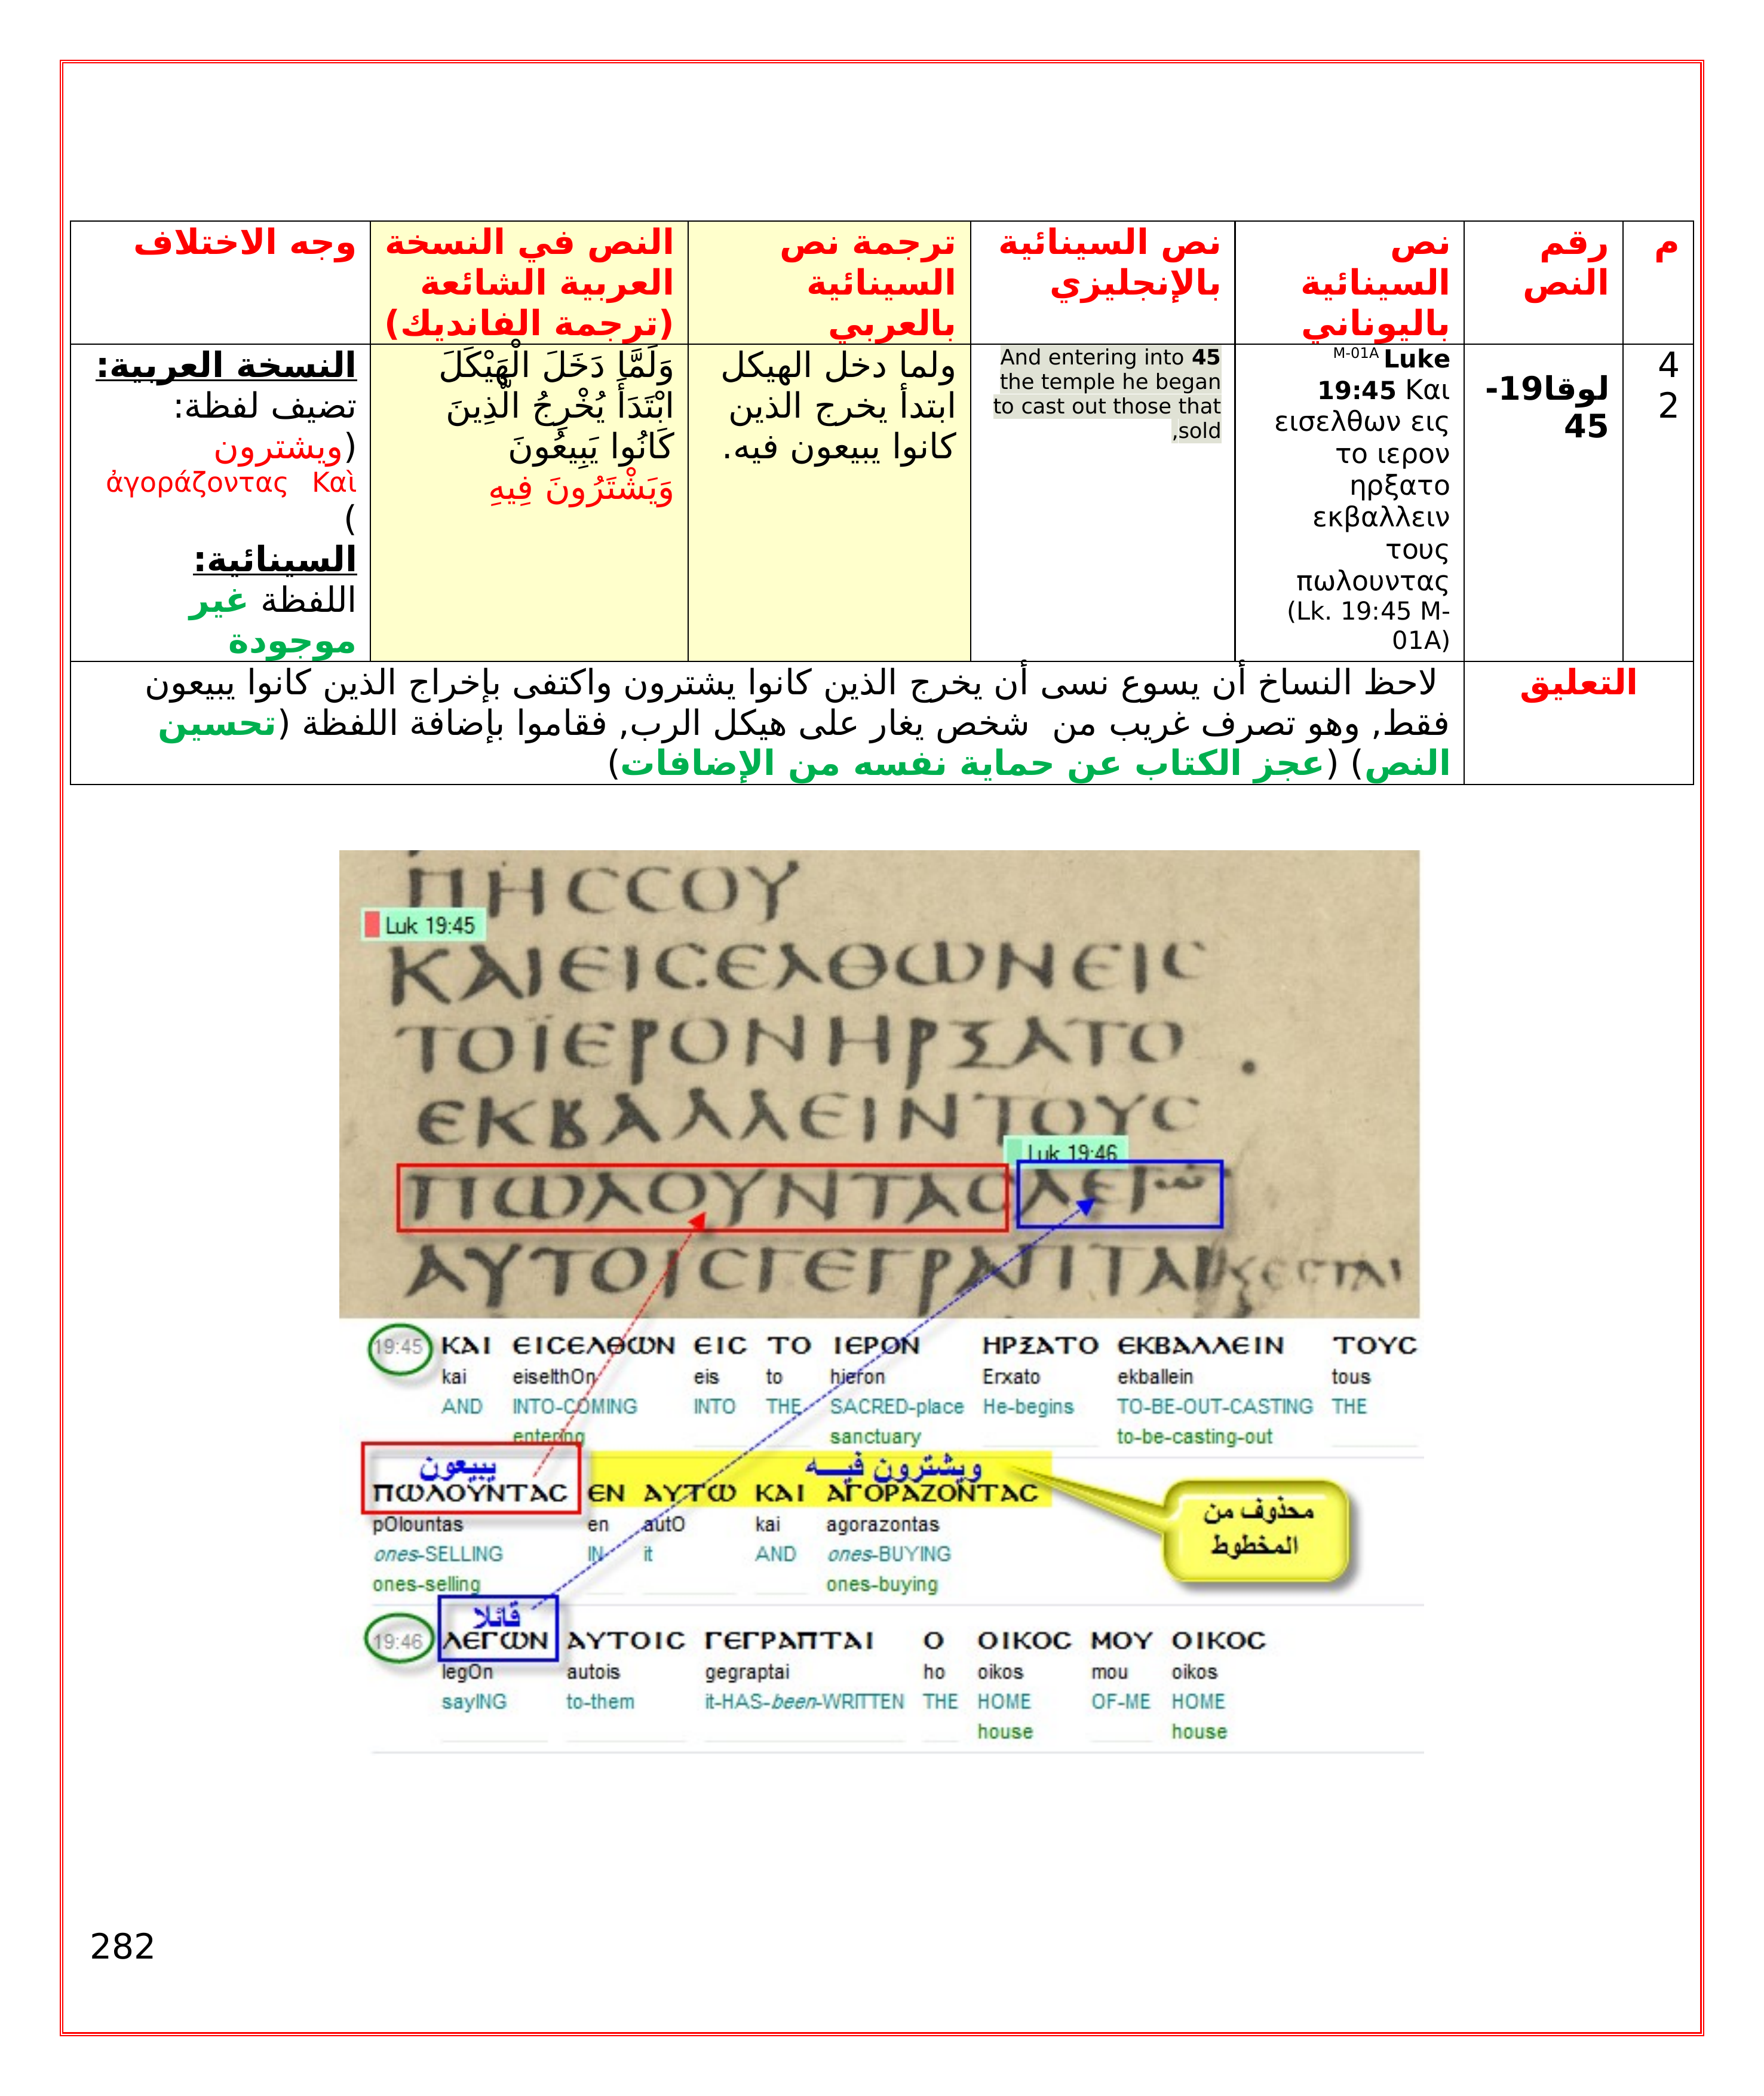 م
رقم
النص
نص
السينائية
باليوناني
نص السينائية
بالإنجليزي
ترجمة نص
السينائية
بالعربي
النص في النسخة
العربية الشائعة
(ترجمة الفانديك)
وجه الاختلاف
4
2
لوقا19-
45
M-01A Luke
19:45 Και
εισελθων εις
το ιερον
ηρξατο
εκβαλλειν
τους
πωλουντας
(Lk. 19:45 M-
01A)
And entering into 45
the temple he began
to cast out those that
,sold
ولما دخل الهيكل
ابتدأ يخرج الذين
كانوا يبيعون فيه.
وَلَمَّا دَخَلَ الْهَيْكَلَ
ابْتَدَأَ يُخْرِجُ الَّذِينَ
كَانُوا يَبِيعُونَ
وَيَشْتَرُونَ فِيهِ
النسخة العربية:
تضيف لفظة:
(ويشترون
ἀγοράζοντας Καὶ
)
السينائية:
اللفظة غير
موجودة
التعليق
لاحظ النساخ أن يسوع نسى أن يخرج الذين كانوا يشترون واكتفى بإخراج الذين كانوا يبيعون
فقط, وهو تصرف غريب من شخص يغار على هيكل الرب, فقاموا بإضافة اللفظة (تحسين
النص) (عجز الكتاب عن حماية نفسه من الإضافات)
ΠΗCCΟΥ
Luk 19:45
ΚΑΙЄΙCЄΛΘΩΝЄΙC
ΤΟΪЄΡΟΝΗΡΞΑΤΟ
ЄΚΒΑΛΛЄΙΝΤΟΥC
Luk 19:46
ΠΩΛΟΥΝΤΑCΛЄΓω
ΑΥΤΟΙCΓЄΓΡΑΠΤΑΙ
19:45 ΚΑΙ ЄΙCЄΛΘΩΝ ЄΙC ΤΟ ΙЄΡΟΝ ΗΡΞΑΤΟ ЄΚΒΑΛΛЄΙΝ ΤΟΥC
kai eiselthOn eis to hieron Erxato ekballein tous
AND INTO-COMING INTO THE SACRED-place He-begins TO-BE-OUT-CASTING THE
entering sanctuary to-be-casting-out
يبيعون ويشترون فيه
ΠΩΛΟΥΝΤΑC ЄΝ ΑΥΤΩ ΚΑΙ ΑΓΟΡΑΖΟΝΤΑC
محذوف من
المخطوط
pOlountas en autO kai agorazontas
ones-SELLING IN it AND ones-BUYING
ones-selling ones-buying
قائلا
19:46 ΛЄΓΩΝ ΑΥΤΟΙC ΓЄΓΡΑΠΤΑΙ Ο ΟΙΚΟC ΜΟΥ ΟΙΚΟC
legOn autois gegraptai ho oikos mou oikos
sayING to-them it-HAS-been-WRITTEN THE HOME OF-ME HOME
house house
282